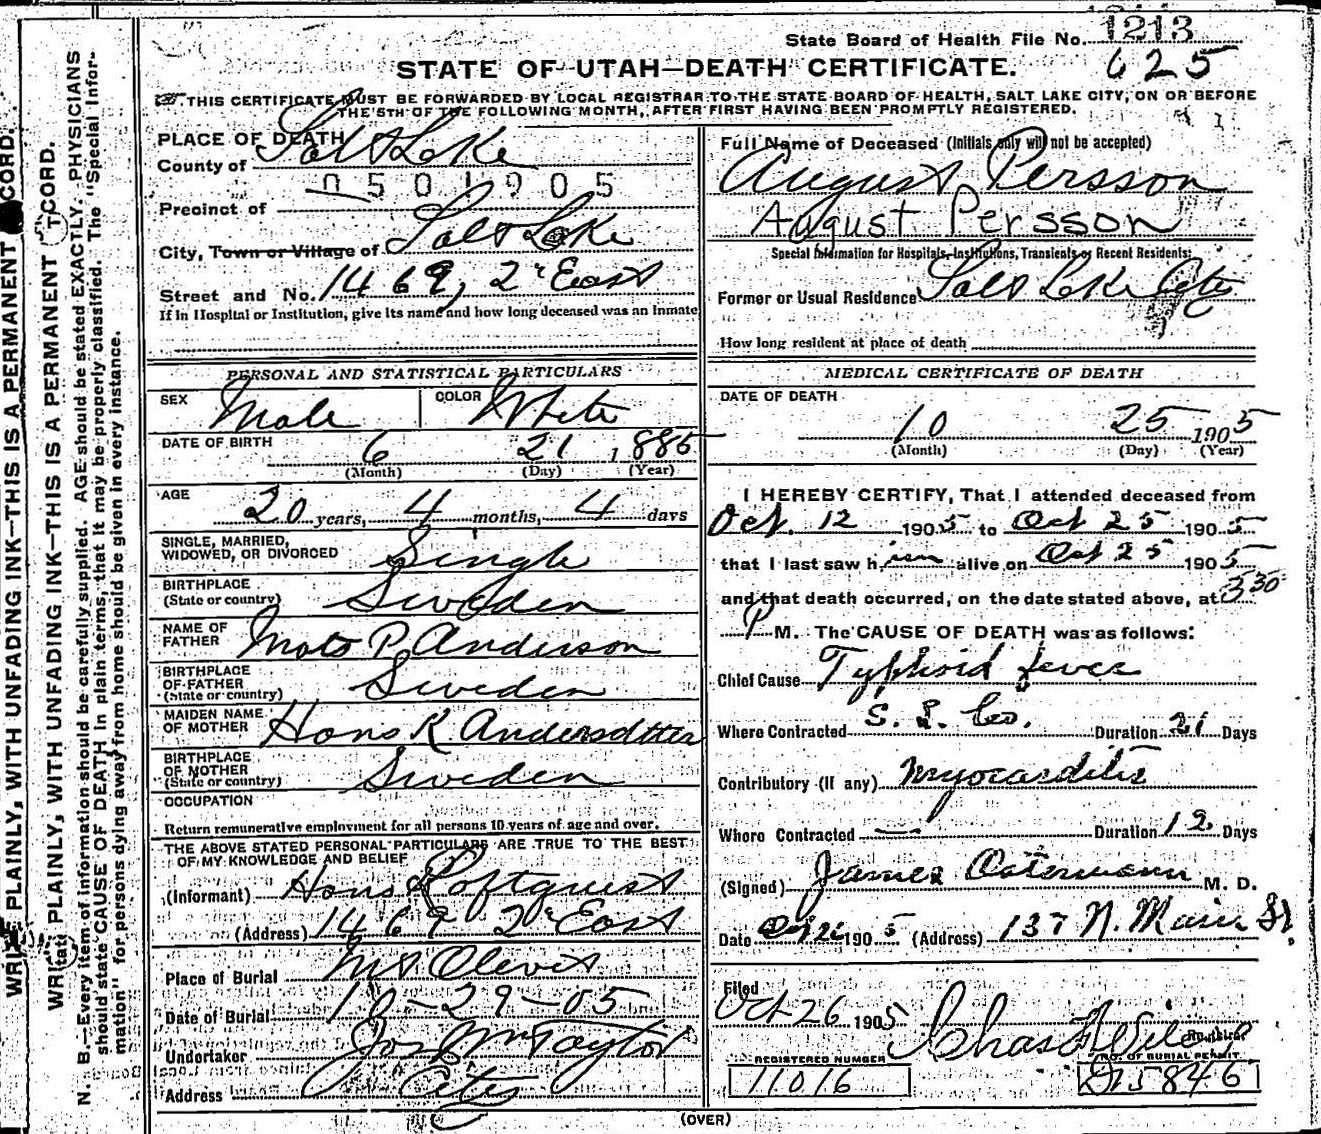 State Board of Health File No. 1213
625
STATE OF UTAH—DEATH CERTIFICATE.
THIS CERTIFICATE MUST BE FORWARDED BY LOCAL REGISTRAR TO THE STATE BOARD OF HEALTH, SALT LAKE CITY, ON OR BEFORE
THE 5TH OF THE FOLLOWING MONTH, AFTER FIRST HAVING BEEN PROMPTLY REGISTERED.
PLACE OF DEATH
County of Salt Lake
0501905
Precinct of
City, Town or Village of Salt Lake
Street and No. 1469, 2d East
If in Hospital or Institution, give its name and how long deceased was an inmate
Full Name of Deceased (Initials only will not be accepted)
August Persson
August Persson
Special Information for Hospitals, Institutions, Transients or Recent Residents:
Former or Usual Residence Salt Lake City
How long resident at place of death
PERSONAL AND STATISTICAL PARTICULARS
SEX Male COLOR White
DATE OF BIRTH 6 21 1885
(Month) (Day) (Year)
AGE 20 years, 4 months, 4 days
SINGLE, MARRIED,
WIDOWED, OR DIVORCED Single
BIRTHPLACE
(State or country) Sweden
NAME OF
FATHER Mats P Anderson
BIRTHPLACE
OF FATHER
(State or country) Sweden
MAIDEN NAME
OF MOTHER Hans K Andersdtter
BIRTHPLACE
OF MOTHER
(State or country) Sweden
OCCUPATION
Return remunerative employment for all persons 10 years of age and over.
THE ABOVE STATED PERSONAL PARTICULARS ARE TRUE TO THE BEST
OF MY KNOWLEDGE AND BELIEF
(Informant) Hans Loftquest
(Address) 1469 2d East
Place of Burial Mt Olevet
Date of Burial 10-29-05
Undertaker Jos. Wm Taylor
Address City
MEDICAL CERTIFICATE OF DEATH
DATE OF DEATH
10 25 1905
(Month) (Day) (Year)
I HEREBY CERTIFY, That I attended deceased from
Oct. 12 1905 to Oct 25 1905
that I last saw him alive on Oct 25 1905
and that death occurred, on the date stated above, at 3 30
P M. The CAUSE OF DEATH was as follows:
Chief Cause Typhoid fever
Where Contracted S. L. Co. Duration 21 Days
Contributory (if any) Myocarditis
Where Contracted — Duration 12 Days
(Signed) James Ostermann M. D.
Date Oct 26 1905 (Address) 137 N. Main St.
Filed
Oct 26 1905
REGISTERED NUMBER NO. OF BURIAL PERMIT
11016 D15846
(OVER)
WRITE PLAINLY, WITH UNFADING INK—THIS IS A PERMANENT RECORD.
N. B.—Every item of information should be carefully supplied. AGE should be stated EXACTLY. PHYSICIANS
should state CAUSE OF DEATH in plain terms, that it may be properly classified. The "Special Infor-
mation" for persons dying away from home should be given in every instance.